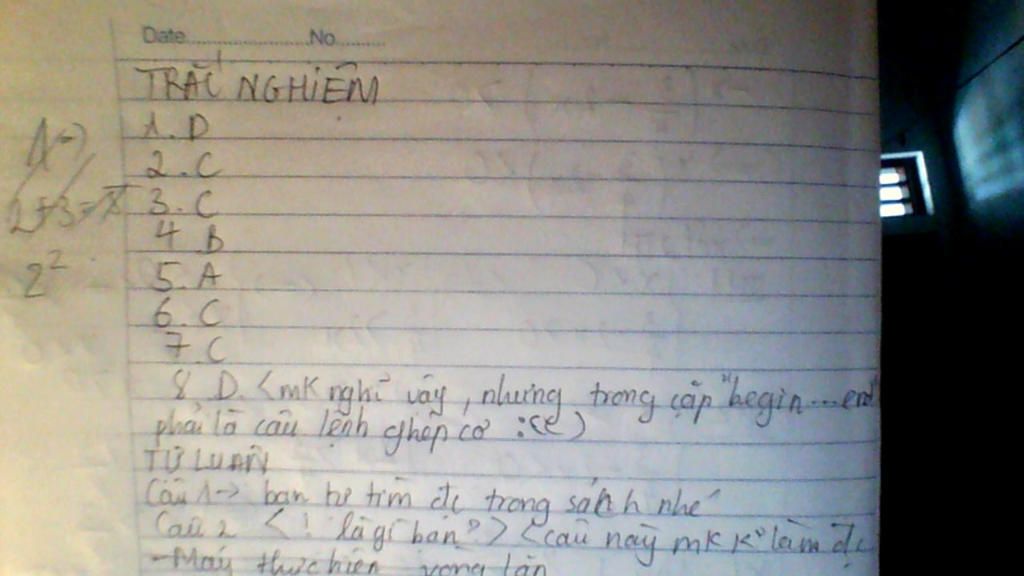 Date................No........
TRẮC NGHIỆM
1. D
2. C
3. C
4 B
5. A
6. C
7 C
8 D. <mk nghĩ vậy, nhưng trong cặp "begin...end"
phải là câu lệnh ghép cơ :((
TỰ LUẬN
Câu 1-> bạn tự tìm đc trong sách nhé
Câu 2 <! là gì bạn?> <câu này mk k° làm đc
- Máy thực hiện vòng lặp
2^2